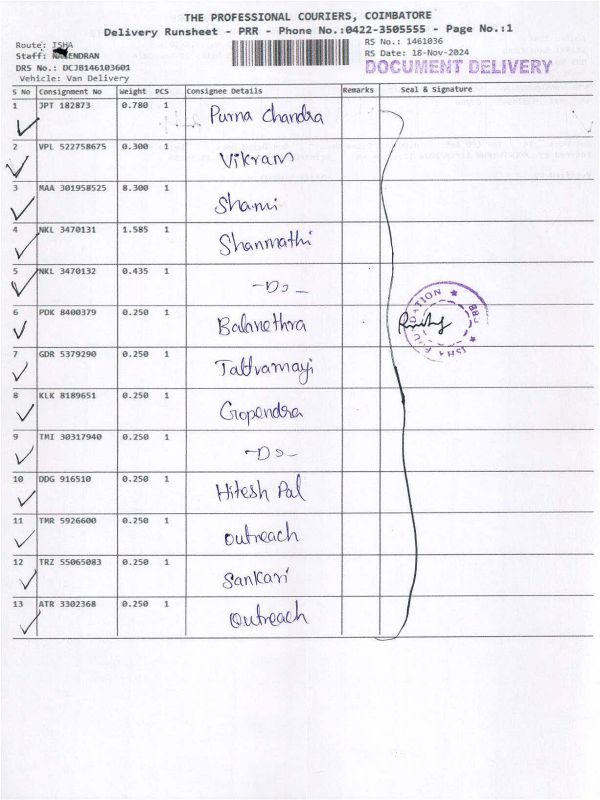 THE PROFESSIONAL COURIERS, COIMBATORE
Delivery Runsheet - PRR - Phone No.:0422-3505555 - Page No.:1
Route: ISHA
RS No.: 1461036
Staff: RAJENDRAN
RS Date: 18-Nov-2024
DRS No.: DCJB146103601
DOCUMENT DELIVERY
Vehicle: Van Delivery
S No Consignment No Weight PCS Consignee Details Remarks Seal & Signature
1 JPT 182873 0.780 1 Purna Chandra
2 VPL 522758675 0.300 1 Vikram
3 MAA 301958525 8.300 1 Shami
4 NKL 3470131 1.585 1 Shanmathi
5 NKL 3470132 0.435 1 -Do-
6 PDK 8400379 0.250 1 Balanethra
7 GDR 5379290 0.250 1 Tattvamayi
8 KLK 8189651 0.250 1 Gopendra
9 TMI 30317940 0.250 1 -Do-
10 DDG 916510 0.250 1 Hitesh Pal
11 TMR 5926600 0.250 1 outreach
12 TRZ 55065083 0.250 1 Sankari
13 ATR 3302368 0.250 1 Outreach
ISHA FOUNDATION